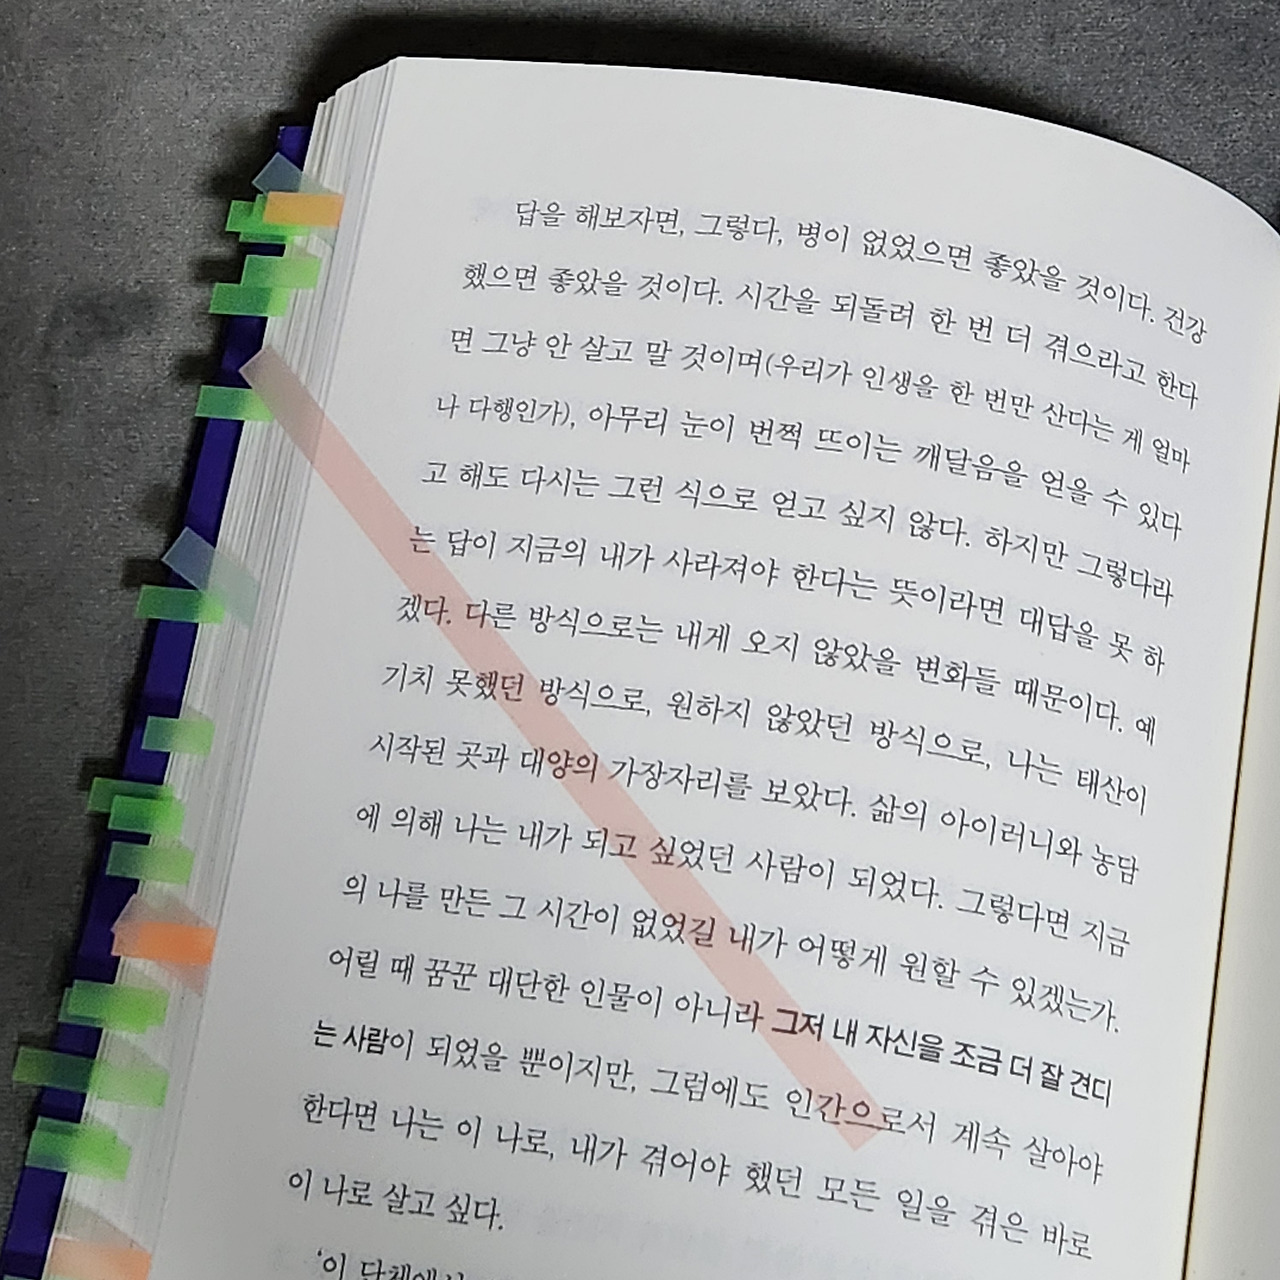 답을 해보자면, 그렇다, 병이 없었으면 좋았을 것이다. 건강
했으면 좋았을 것이다. 시간을 되돌려 한 번 더 겪으라고 한다
면 그냥 안 살고 말 것이며(우리가 인생을 한 번만 산다는 게 얼마
나 다행인가), 아무리 눈이 번쩍 뜨이는 깨달음을 얻을 수 있다
고 해도 다시는 그런 식으로 얻고 싶지 않다. 하지만 그렇다라
는 답이 지금의 내가 사라져야 한다는 뜻이라면 대답을 못 하
겠다. 다른 방식으로는 내게 오지 않았을 변화들 때문이다. 예
기치 못했던 방식으로, 원하지 않았던 방식으로, 나는 태산이
시작된 곳과 대양의 가장자리를 보았다. 삶의 아이러니와 농담
에 의해 나는 내가 되고 싶었던 사람이 되었다. 그렇다면 지금
의 나를 만든 그 시간이 없었길 내가 어떻게 원할 수 있겠는가.
어릴 때 꿈꾼 대단한 인물이 아니라 그저 내 자신을 조금 더 잘 견디
는 사람이 되었을 뿐이지만, 그럼에도 인간으로서 계속 살아야
한다면 나는 이 나로, 내가 겪어야 했던 모든 일을 겪은 바로
이 나로 살고 싶다.
'이 단체에서